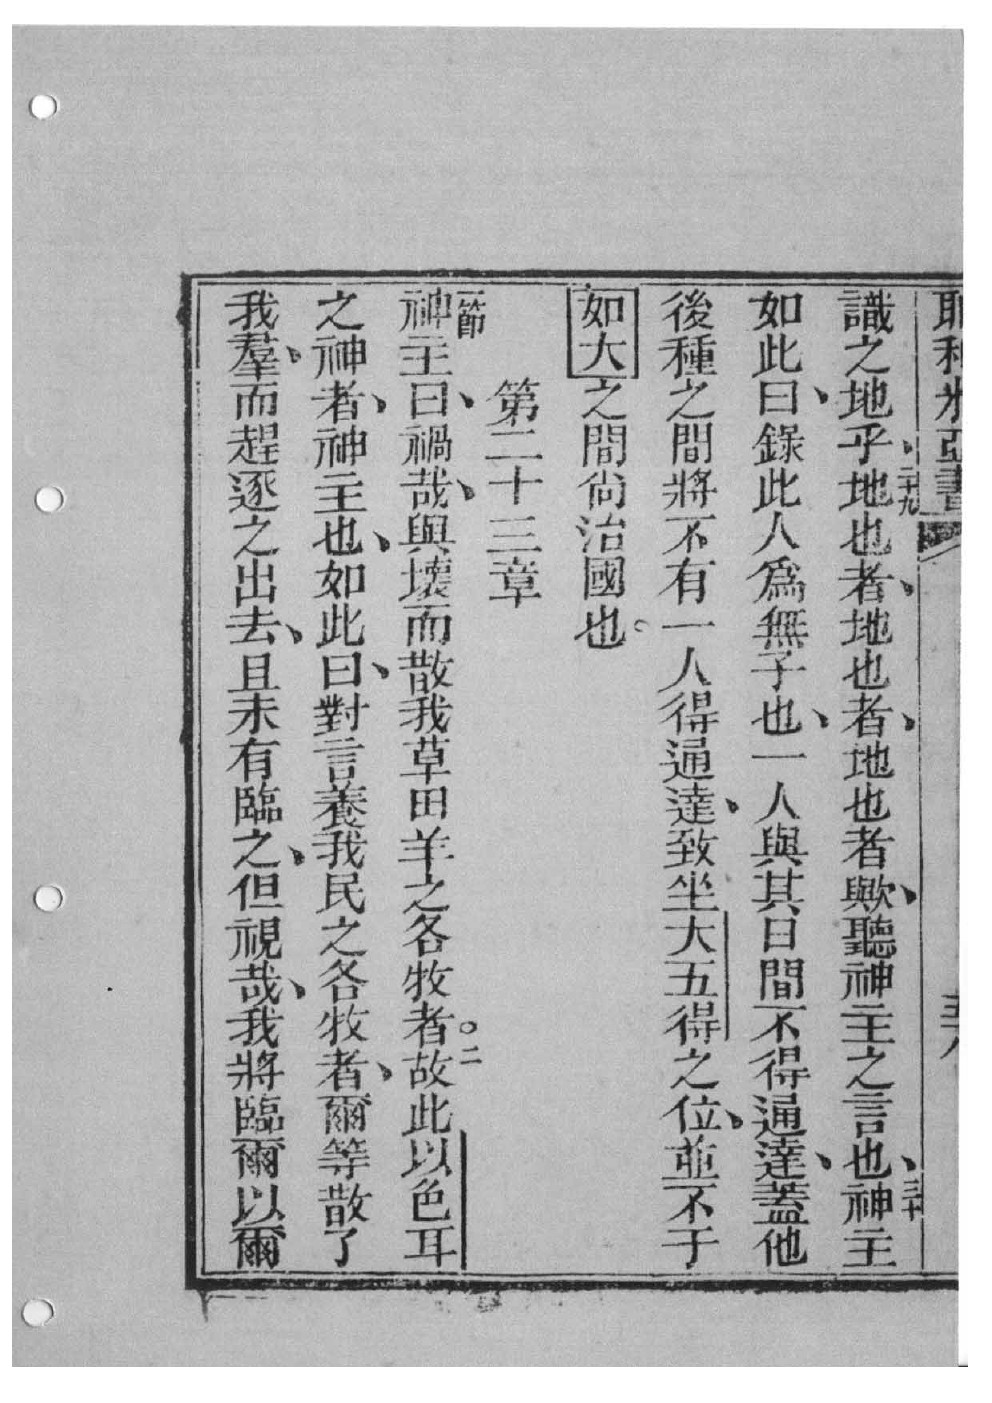 耶利米亞書 五八
識之地乎、二十九地也者、地也者、地也者歟、聽神主之言也、三十神主
如此曰、錄此人爲無子也、一人與其日間不得通達、蓋他
後種之間將不有一人得通達、致坐大五得之位、並不于
如大之間尙治國也。
第二十三章
一節神主曰、禍哉、與壞而散我草田羊之各牧者。二故此以色耳
之神者、神主也、如此曰、對言養我民之各牧者、爾等散了
我羣、而趕逐之出去、且未有臨之、但視哉、我將臨爾以爾